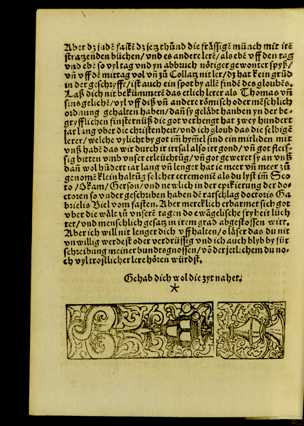 Aber dz jndẽ fastẽ dz jcz thůnd die fråssigẽ münch mit irẽ
strazenden büchen / und es andere lerẽ / als ebẽ vff den tag
und ebẽ so vyl tag vñ yn abbruch nötiger gewonter spyß /
vñ vff dẽ mittag vol vñ zů Collatz nit ler / dz hat kein grũd
in der geschrifft / ist auch ein spot by allẽ findẽ des gloubẽs.
Laß dich nit bekümmerẽ das etlich lerer als Thomas vñ
sins gelichẽ / vyl vff diß vñ andere römisch oder mẽschlich
ordnung gehalten haben / dañ sy gelåbt handen zů der be-
gryfflichen finsternüß die got verhengt hat zwey hundert
iar lang über die christenheit / und ich gloub das die selbigẽ
lerer / welche vylicht by got im hymel sind ein mitliden mit
vnß habẽ das wir durch ir irrsal also irr gond / vñ got fleis-
sig bitten vmb vnser erlüchtũg / vñ got gewert sy an vnß
dañ wol hůndert iar lengen hat ie mer vnd meer zů
genomẽ klein haltũg ß lcher ceremoniẽ als du lyst im Sco
to / Okam / Gerson / vnd newlich in der epistierung der do-
ctoren so vnder geschriben haben dẽ ratschlag doctoris Ga
brielis Biel vom fasten. Aber mercklich erbarmet sich got
über die wält zů vnserẽ tagẽ: do ewãgelische fryheit lüch
tet / vnd menschlich gesatz in irem grad abgestossen wirt.
Aber ich will nit lenger dich vff halten / ö låser das du nit
vnwillig werdest oder verdrüssig vnd ich auch blyb by für
schreibung meiner bundtgnossen / võ der jetlichem du no-
ch vyl trostlicher lere hören würdst.
Gehab dich wol die zyt nahet.